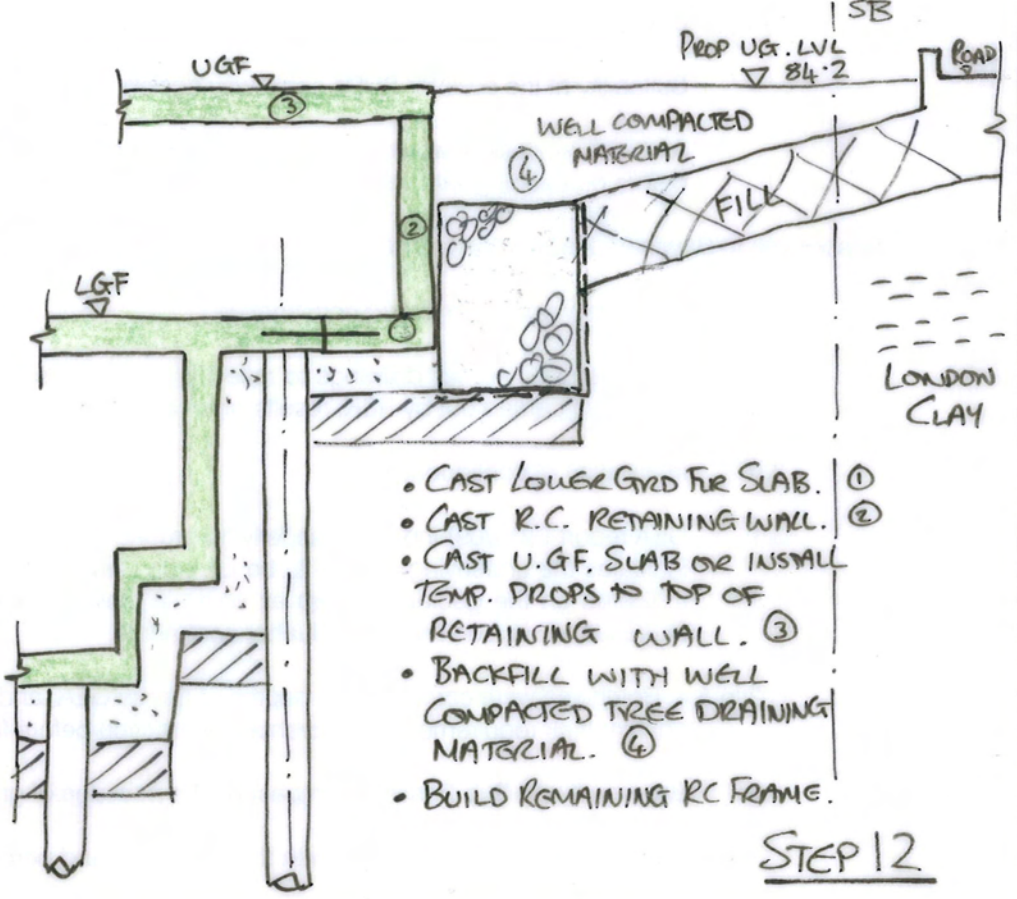 SB
PROP UG. LVL
84.2
ROAD
UGF
3
WELL COMPACTED
MATERIAL
4
FILL
2
LGF
LONDON
CLAY
• CAST LOWER GRD FLR SLAB. 1
• CAST R.C. RETAINING WALL. 2
• CAST U.GF. SLAB OR INSTALL
TEMP. PROPS TO TOP OF
RETAINING WALL. 3
• BACKFILL WITH WELL
COMPACTED FREE DRAINING
MATERIAL. 4
• BUILD REMAINING RC FRAME.
STEP 12